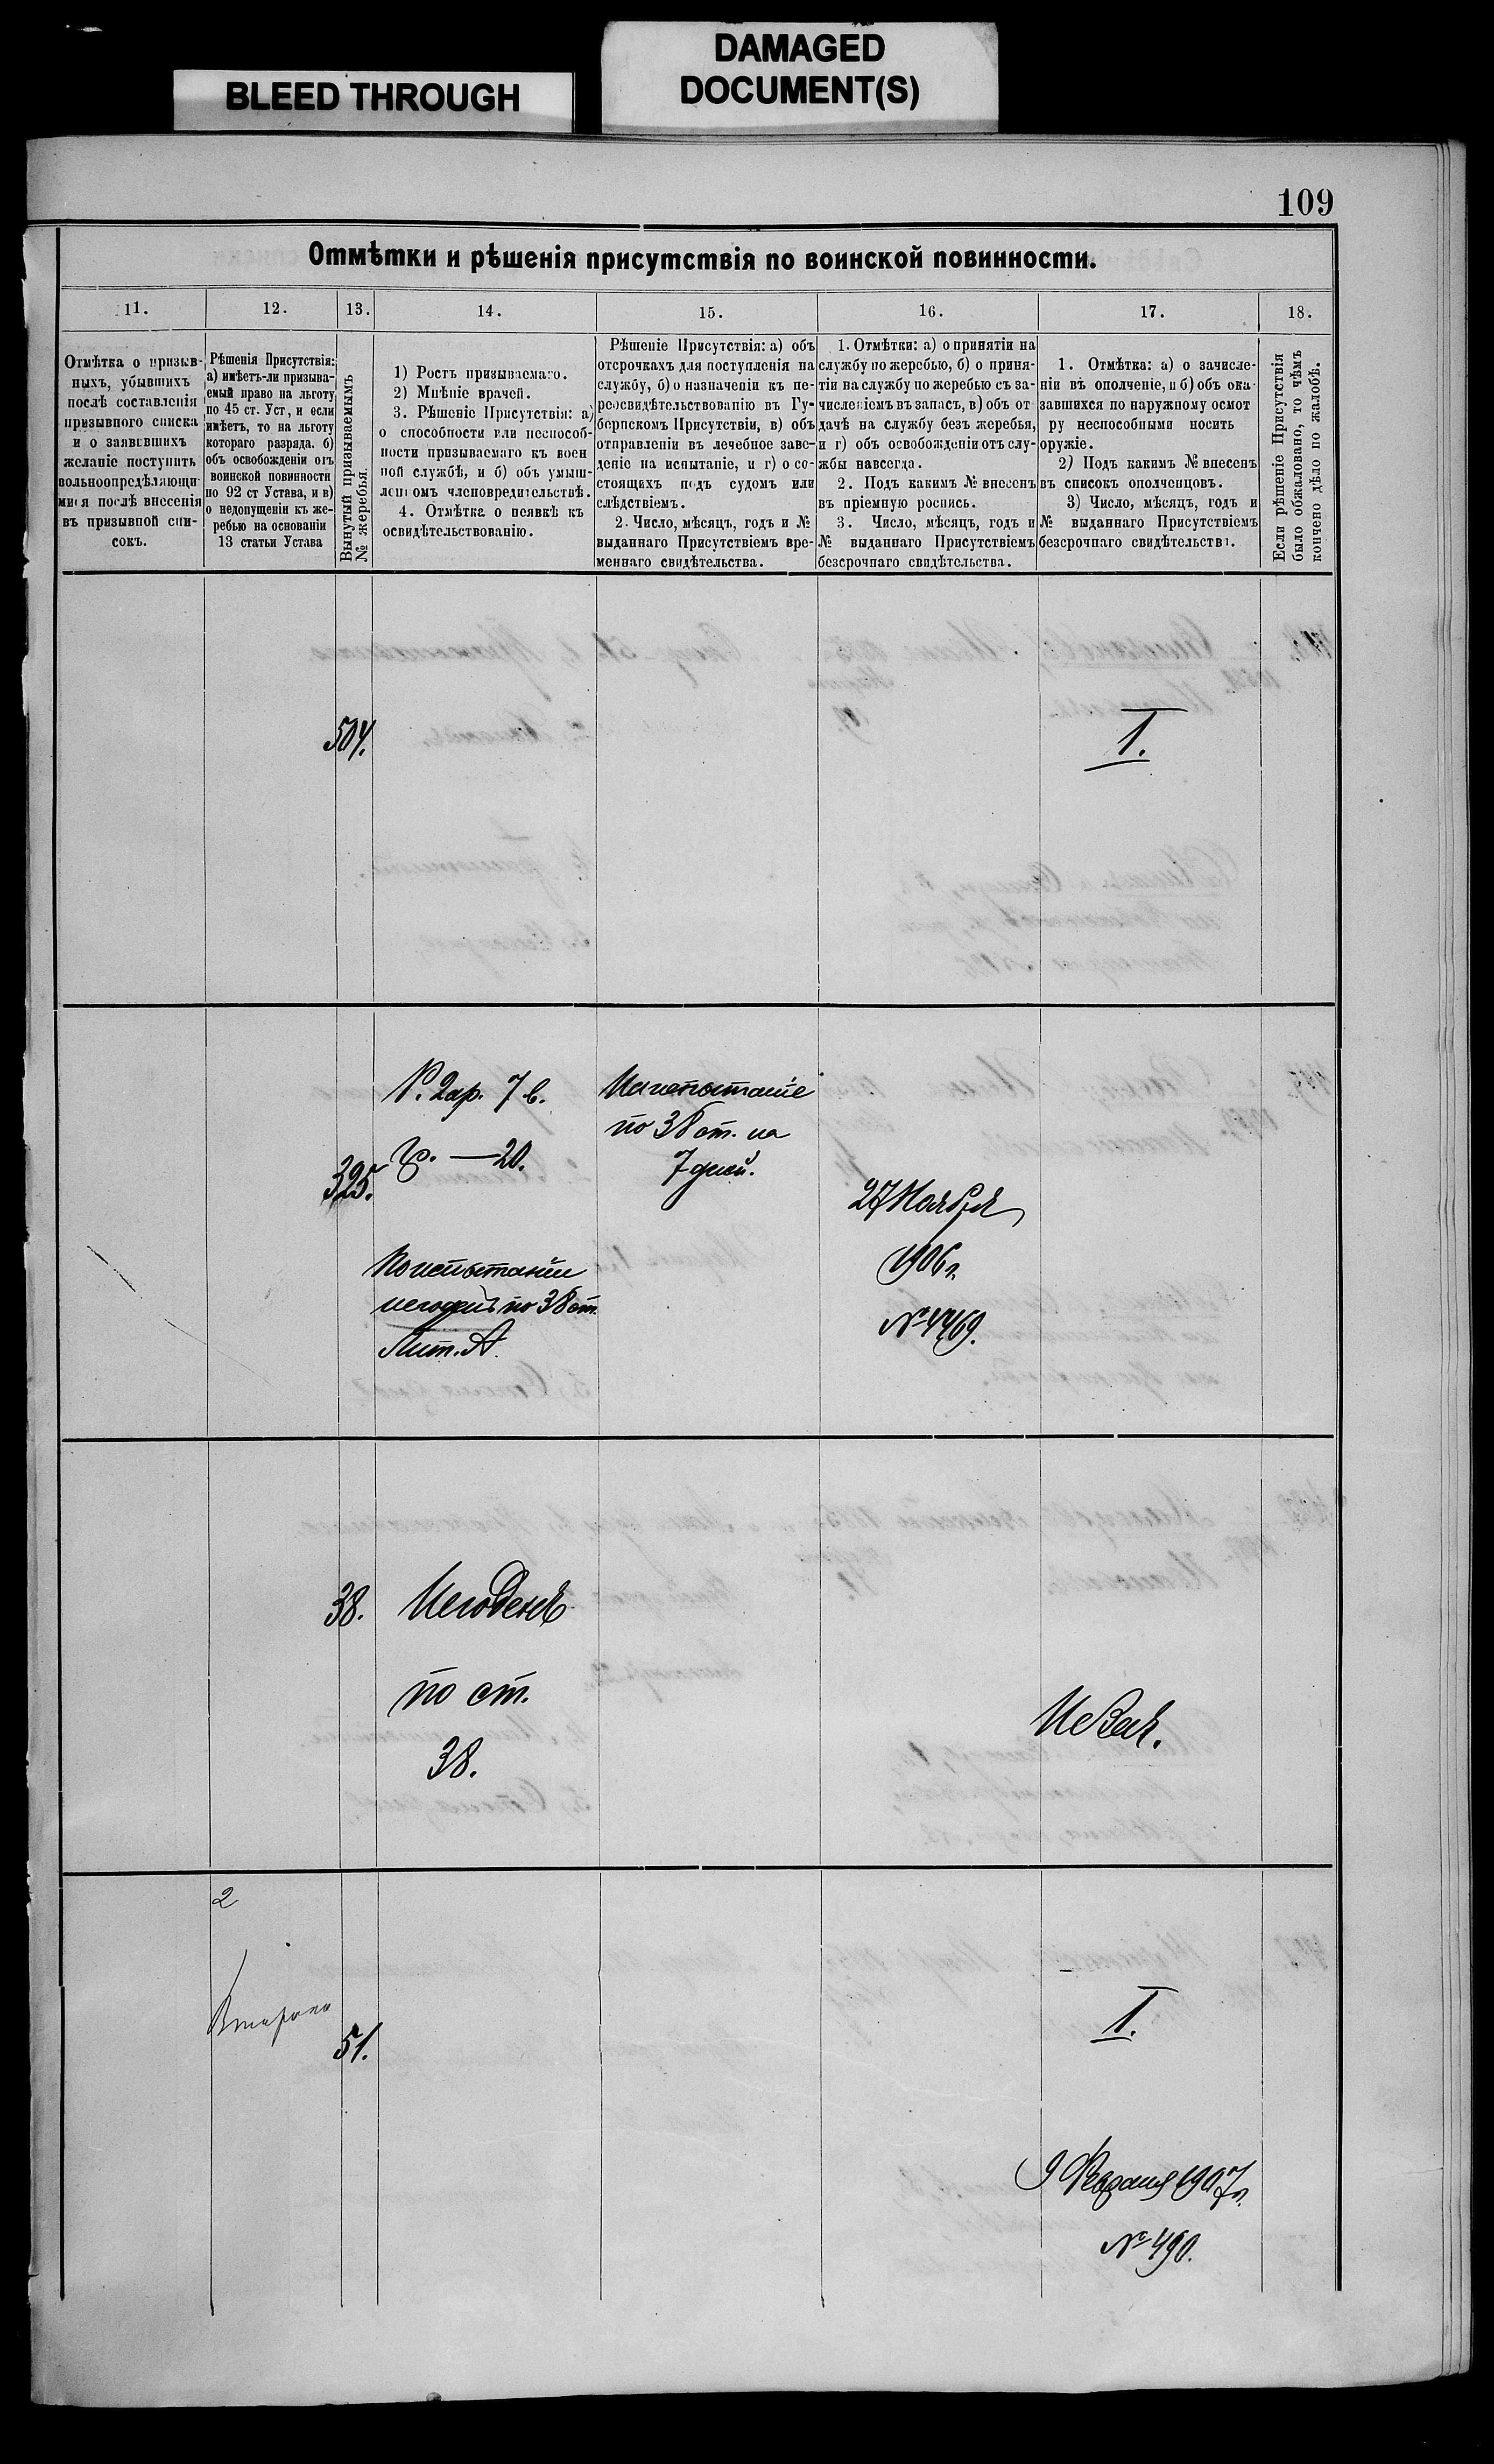 BLEED THROUGH
DAMAGED
DOCUMENT(S)
109
Отмѣтки и рѣшенія присутствія по воинской повинности.
11.
12.
13.
14.
15.
16.
17.
18.
Отмѣтка о призыв-
ныхъ, убывшихъ
послѣ составленія
призывного списка
и о заявившихъ
желаніе поступить
вольноопредѣляющи
мися послѣ внесенія
въ призывной спи-
сокъ.
Рѣшенія Присутствія:
а) имѣетъ-ли призыва-
емый право на льготу
по 45 ст. Уст, и если
имѣетъ, то на льготу
котораго разряда. б)
объ освобожденіи отъ
воинской повинности
по 92 ст Устава, и в)
о недопущеніи къ же-
ребью на основаніи
13 статьи Устава
Вынутый призываемымъ
№ жеребья.
1) Ростъ призываемаго.
2) Мнѣніе врачей.
3. Рѣшеніе Присутствія: а)
о способности или неспособ-
ности призываемаго къ воен
ной службѣ, и б) объ умыш-
ленномъ членовредительствѣ.
4. Отмѣтка о неявкѣ къ
освидѣтельствованію.
Рѣшеніе Присутствія: а) объ
отсрочкахъ для поступленія на
службу, б) о назначеніи къ пе-
реосвидѣтельствованію въ Гу-
бернскомъ Присутствіи, в) объ
отправленіи въ лечебное заве-
деніе на испытаніе, и г) о со-
стоящихъ подъ судомъ или
слѣдствіемъ.
2. Число, мѣсяцъ, годъ и №
выданнаго Присутствіемъ вре-
меннаго свидѣтельства.
1. Отмѣтки: а) о принятіи на
службу по жеребью, б) о приня-
тіи на службу по жеребью съ за-
численіемъ въ запасъ, в) объ от
дачѣ на службу безъ жеребья,
и г) объ освобожденіи отъ слу-
жбы навсегда.
2. Подъ какимъ № внесенъ
въ пріемную роспись.
3. Число, мѣсяцъ, годъ и
№ выданнаго Присутствіемъ
безсрочнаго свидѣтельства.
1. Отмѣтка: а) о зачисле-
ніи въ ополченіе, и б) объ ока
завшихся по наружному осмот
ру неспособными носить
оружіе.
2) Подъ какимъ № внесенъ
въ списокъ ополченцовъ.
3) Число, мѣсяцъ, годъ и
№ выданнаго Присутствіемъ
безсрочнаго свидѣтельства.
Если рѣшеніе Присутствія
было обжаловано, то чѣмъ
кончено дѣло по жалобѣ.
504.
I.
325.
Р. 2 ар. 7 в.
Гр. — 20.
По испытаніи
негоденъ по 38 ст.
Лит. А
На испытаніе
по 38 ст. на
7 дней.
27 Ноября
1906 г.
№ 4469.
38.
Негоденъ
по ст.
38.
Не Зач.
2
Второго
51.
I.
9 Февраля 1907 г.
№ 490.